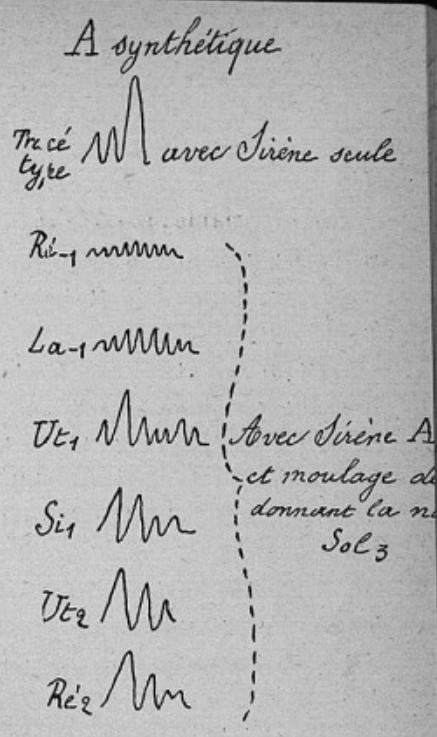 A synthétique
Tracé
type
avec Sirène seule
Ré-1
La-1
Ut1
Si1
Ut2
Ré2
Avec Sirène A
et moulage de
donnant la
Sol3